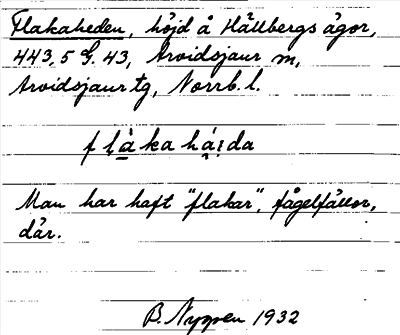 Flakaheden, höjd å Hällbergs ägor,
443,5 G. 43, Arvidsjaur sn,
Arvidsjaur tg, Norrb. l.
flàkahá̤i̯da
Man har haft "flakar", fågelfällor,
där.
B. Nyppen 1932